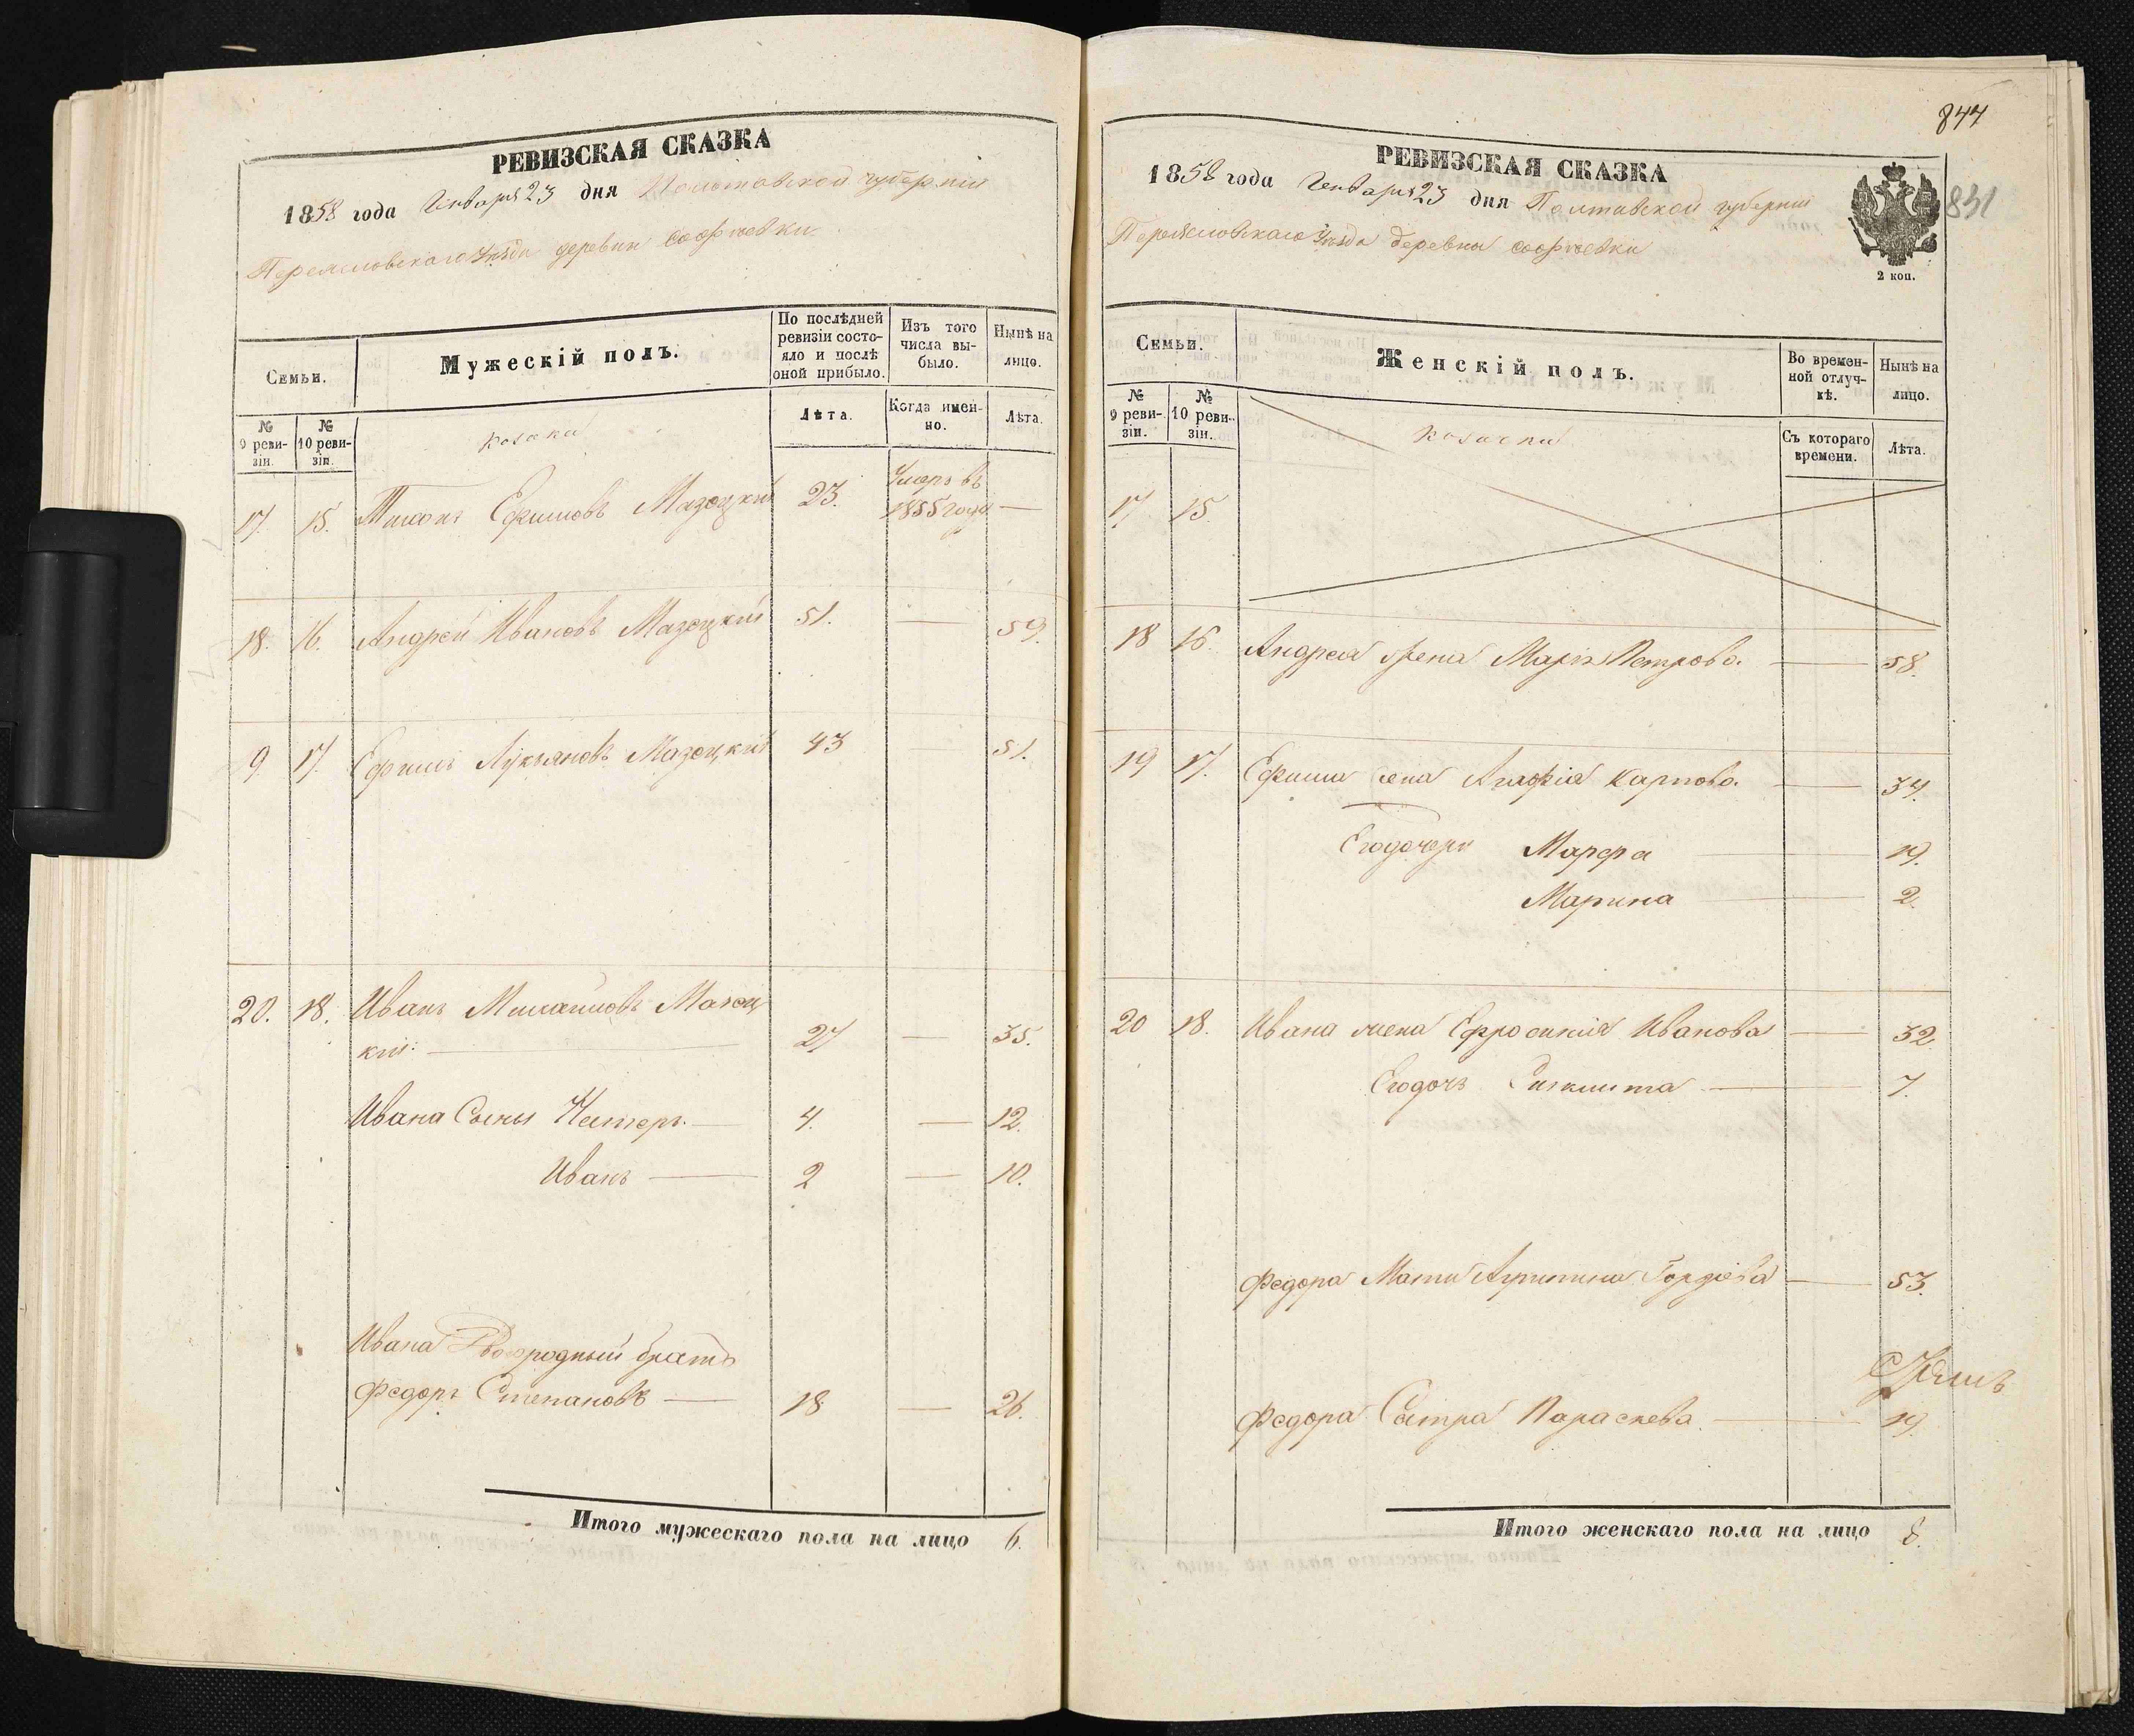 РЕВИЗСКАЯ СКАЗКА
1858 года Генваря 23 дня Полтавской губерніи
Переяславскаго Уѣзда деревни Софіевки
Семьи.
Мужескій полъ.
По послѣдней ревизіи состояло и послѣ оной прибыло.
Изъ того числа выбыло.
Нынѣ на лицо.
№ 9 ревизіи.
№ 10 ревизіи.
козаки
Лѣта.
Когда именно.
Лѣта.
17. 15. Тихонъ Ефимовъ Мазоцкій 23. Умеръ въ 1855 году —
18. 16. Андрей Ивановъ Мазоцкій 51. — 59.
9 17. Ефимъ Лукьяновъ Мазоцкій 43 — 51.
20. 18. Иванъ Михайловъ Мазоц
кій. — 27 — 35.
Ивана Сыны Нестеръ — 4. — 12.
Иванъ — 2 — 10.
Ивана Двоюродный братъ
Федоръ Степановъ — 18 — 26.
Итого мужескаго пола на лицо 6.
844
831
РЕВИЗСКАЯ СКАЗКА
1858 года Генваря 23 дня Полтавской губерніи
Переяславскаго Уѣзда деревни Софіевки
2 коп.
Семьи.
Женскій полъ.
Во временной отлучкѣ.
Нынѣ на лицо.
№ 9 ревизіи.
№ 10 ревизіи.
козачки
Съ котораго времени.
Лѣта.
17 15
18 16 Андрея жена Марія Петрова. — 58.
19 17. Ефима жена Агафія Карпова. — 34.
Его дочери Марфа — 19.
Марина — 2.
20 18. Ивана жена Ефросинія Иванова — 32.
Его дочь — 7.
Федора Мати Агрипина Гордіева — 53.
Федора Сестра Параскева — 19.
Итого женскаго пола на лицо 8.